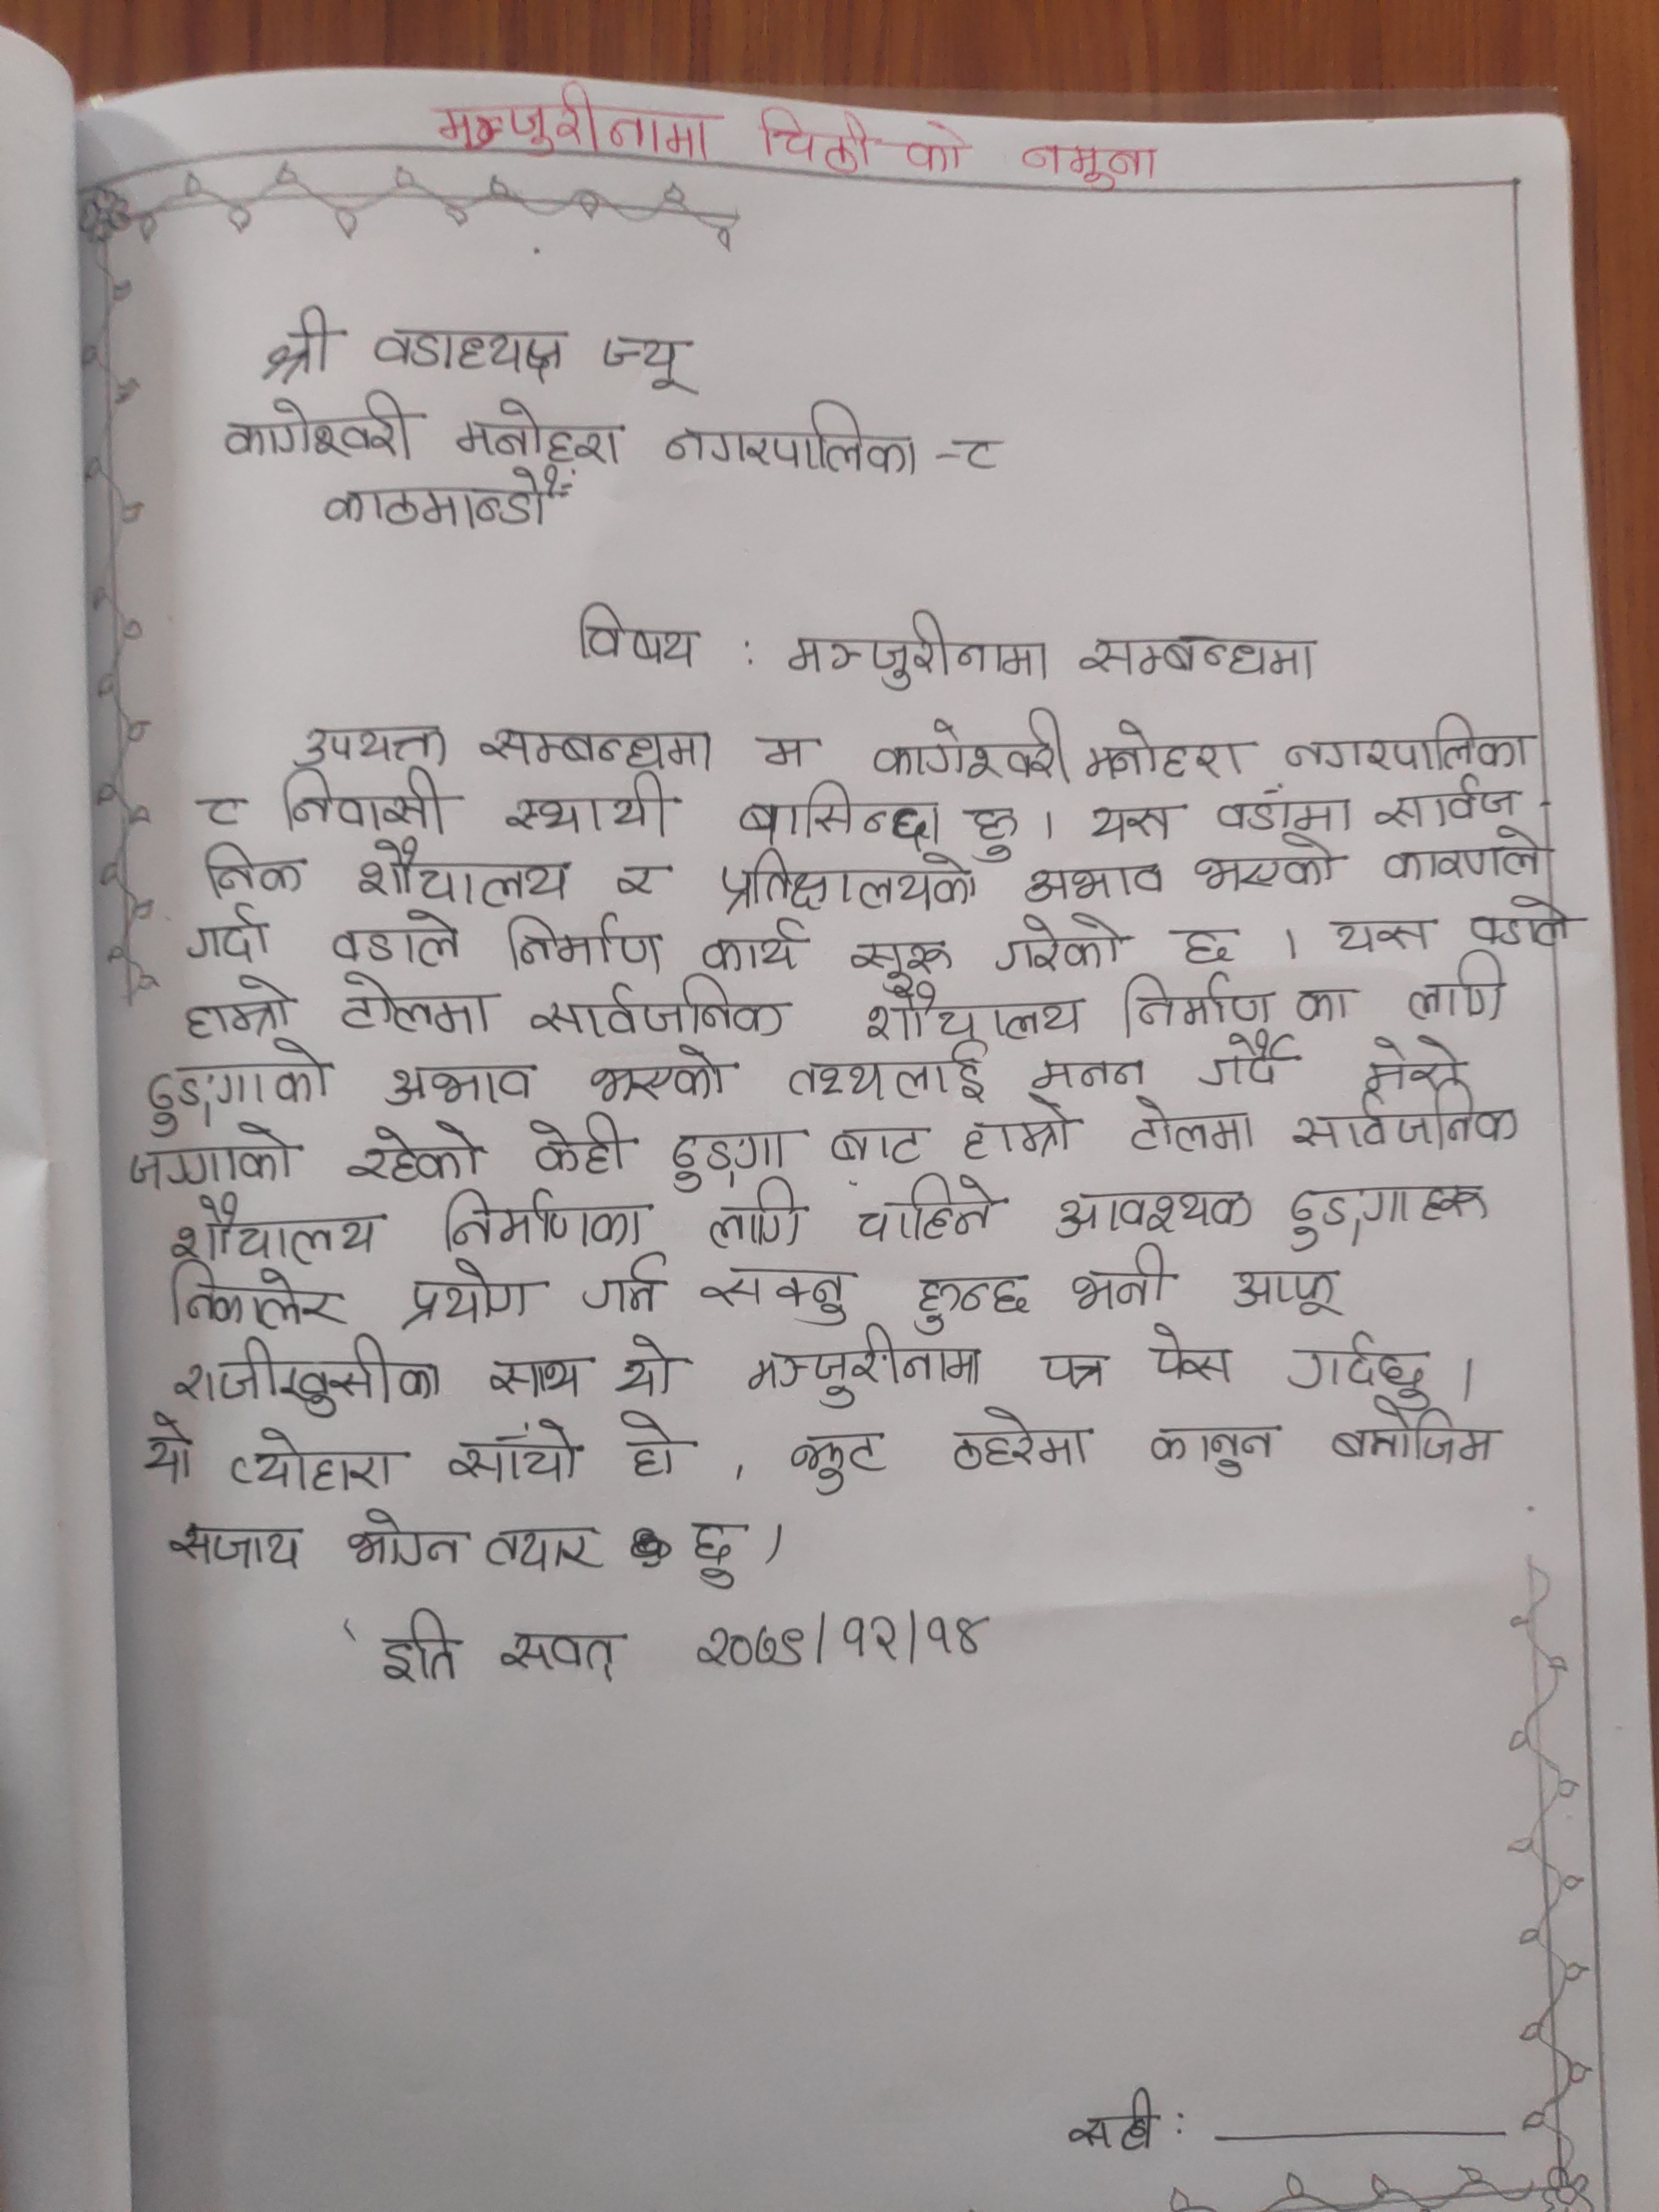 मञ्जुरीनामा चिठी को नमूना
श्री वडाध्यक्ष ज्यू
कागेश्वरी मनोहरा नगरपालिका -८
काठमान्डौं
विषय : मञ्जुरीनामा सम्बन्धमा
उपयत्त सम्बन्धमा म कागेश्वरी मनोहरा नगरपालिका
८ निवासी स्थायी बासिन्दा हु। यस वडामा सार्वज
निक शौचालय र प्रतिक्षालयको अभाव भएको कारणले
गर्दा वडाले निर्माण कार्य सूरू गरेको छ । यस वडाले
हाम्रो टोलमा सार्वजनिक शौचालय निर्माण का लागि
ढुङ्गाको अभाव भएको तथ्यलाई मनन गर्दै मेरो
जग्गाको रहेको केही ढुङ्गा बाट हाम्रो टोलमा सार्वजनिक
शौचालय निर्माणका लागि चाहिने आवश्यक ढुङ्गाहरू
निकालेर प्रयोग गर्न सक्नु हुन्छ भनी आफू
राजीखुसीका साथ यो मञ्जुरीनामा पत्र पेस गर्दछु ।
यो व्योहारा साँचो हो , झुट ठहरेमा कानुन बमोजिम
सजाय भोग्न तयार छु ।
इति सवत् २०७९/१२/१४
सही : ____________